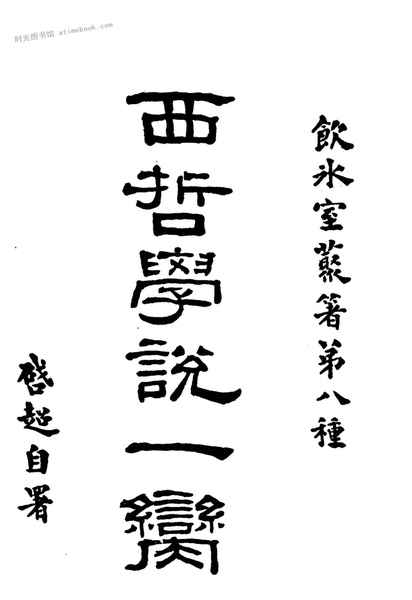 时光图书馆 etimebook.com
飲冰室叢箸第八種
西哲學說一臠
啓超自署